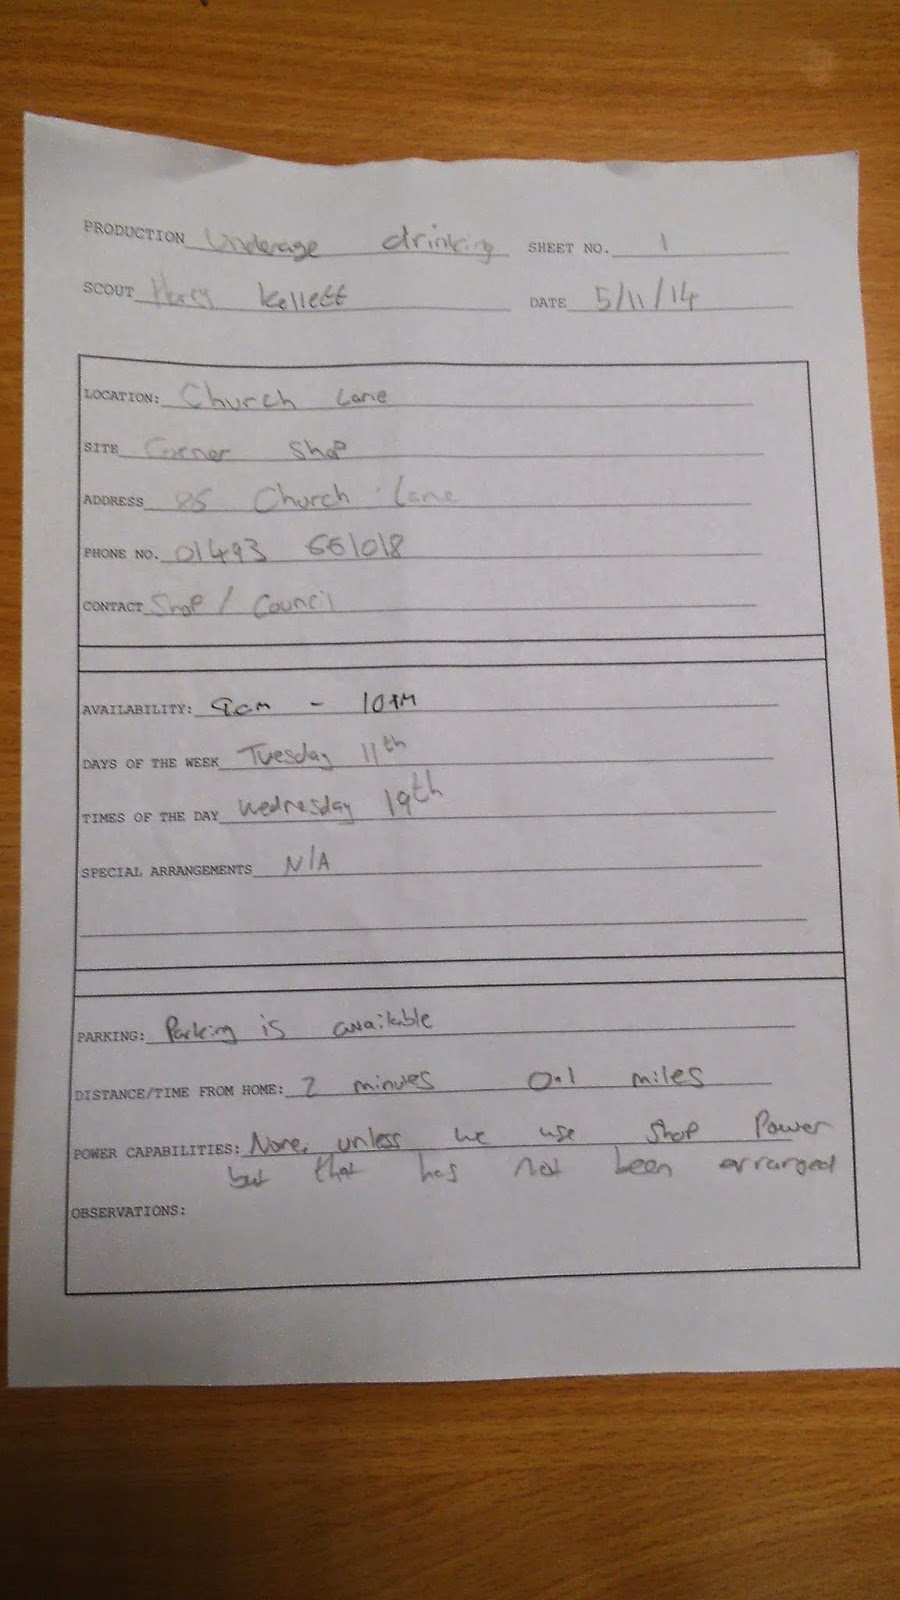 PRODUCTION Underage drinking SHEET NO. 1
SCOUT Kellett DATE 5/11/14
LOCATION: Church Lane
SITE Corner Shop
ADDRESS Church Lane
PHONE NO. 01493 661018
CONTACT Shop / Council
AVAILABILITY: 9am - 10PM
DAYS OF THE WEEK Tuesday 11th
TIMES OF THE DAY Wednesday 19th
SPECIAL ARRANGEMENTS N/A
PARKING: Parking is available
DISTANCE/TIME FROM HOME: 2 minutes 0.1 miles
POWER CAPABILITIES: None, unless we use Shop Power
but that has not been arranged
OBSERVATIONS: